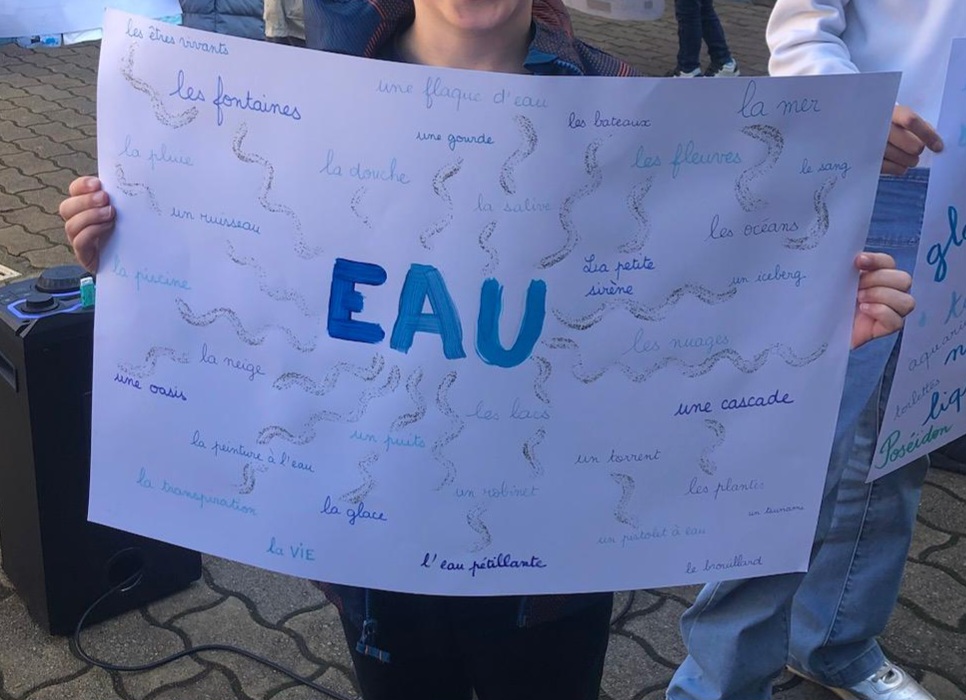 les êtres vivants
les fontaines
une flaque d'eau
la mer
une gourde
les bateaux
la pluie
la douche
les fleuves
le sang
un ruisseau
la salive
les océans
la piscine
EAU
La petite
sirène
un iceberg
la neige
les nuages
une oasis
les lacs
une cascade
la peinture à l'eau
un puits
un torrent
la transpiration
la glace
un robinet
les plantes
un tsunami
un pistolet à eau
la VIE
l'eau pétillante
le brouillard
toilettes
Poséidon